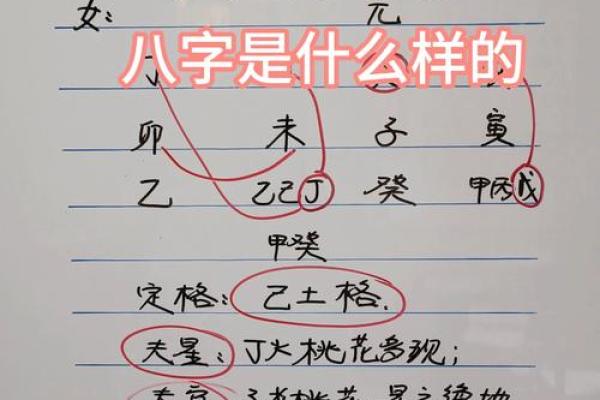 女： 元
八字是什么样的
丁
卯 未 子 寅
乙 乙己丁 癸 甲丙戊
甲癸
定格：己土格．
夫星：丁火桃花多现；